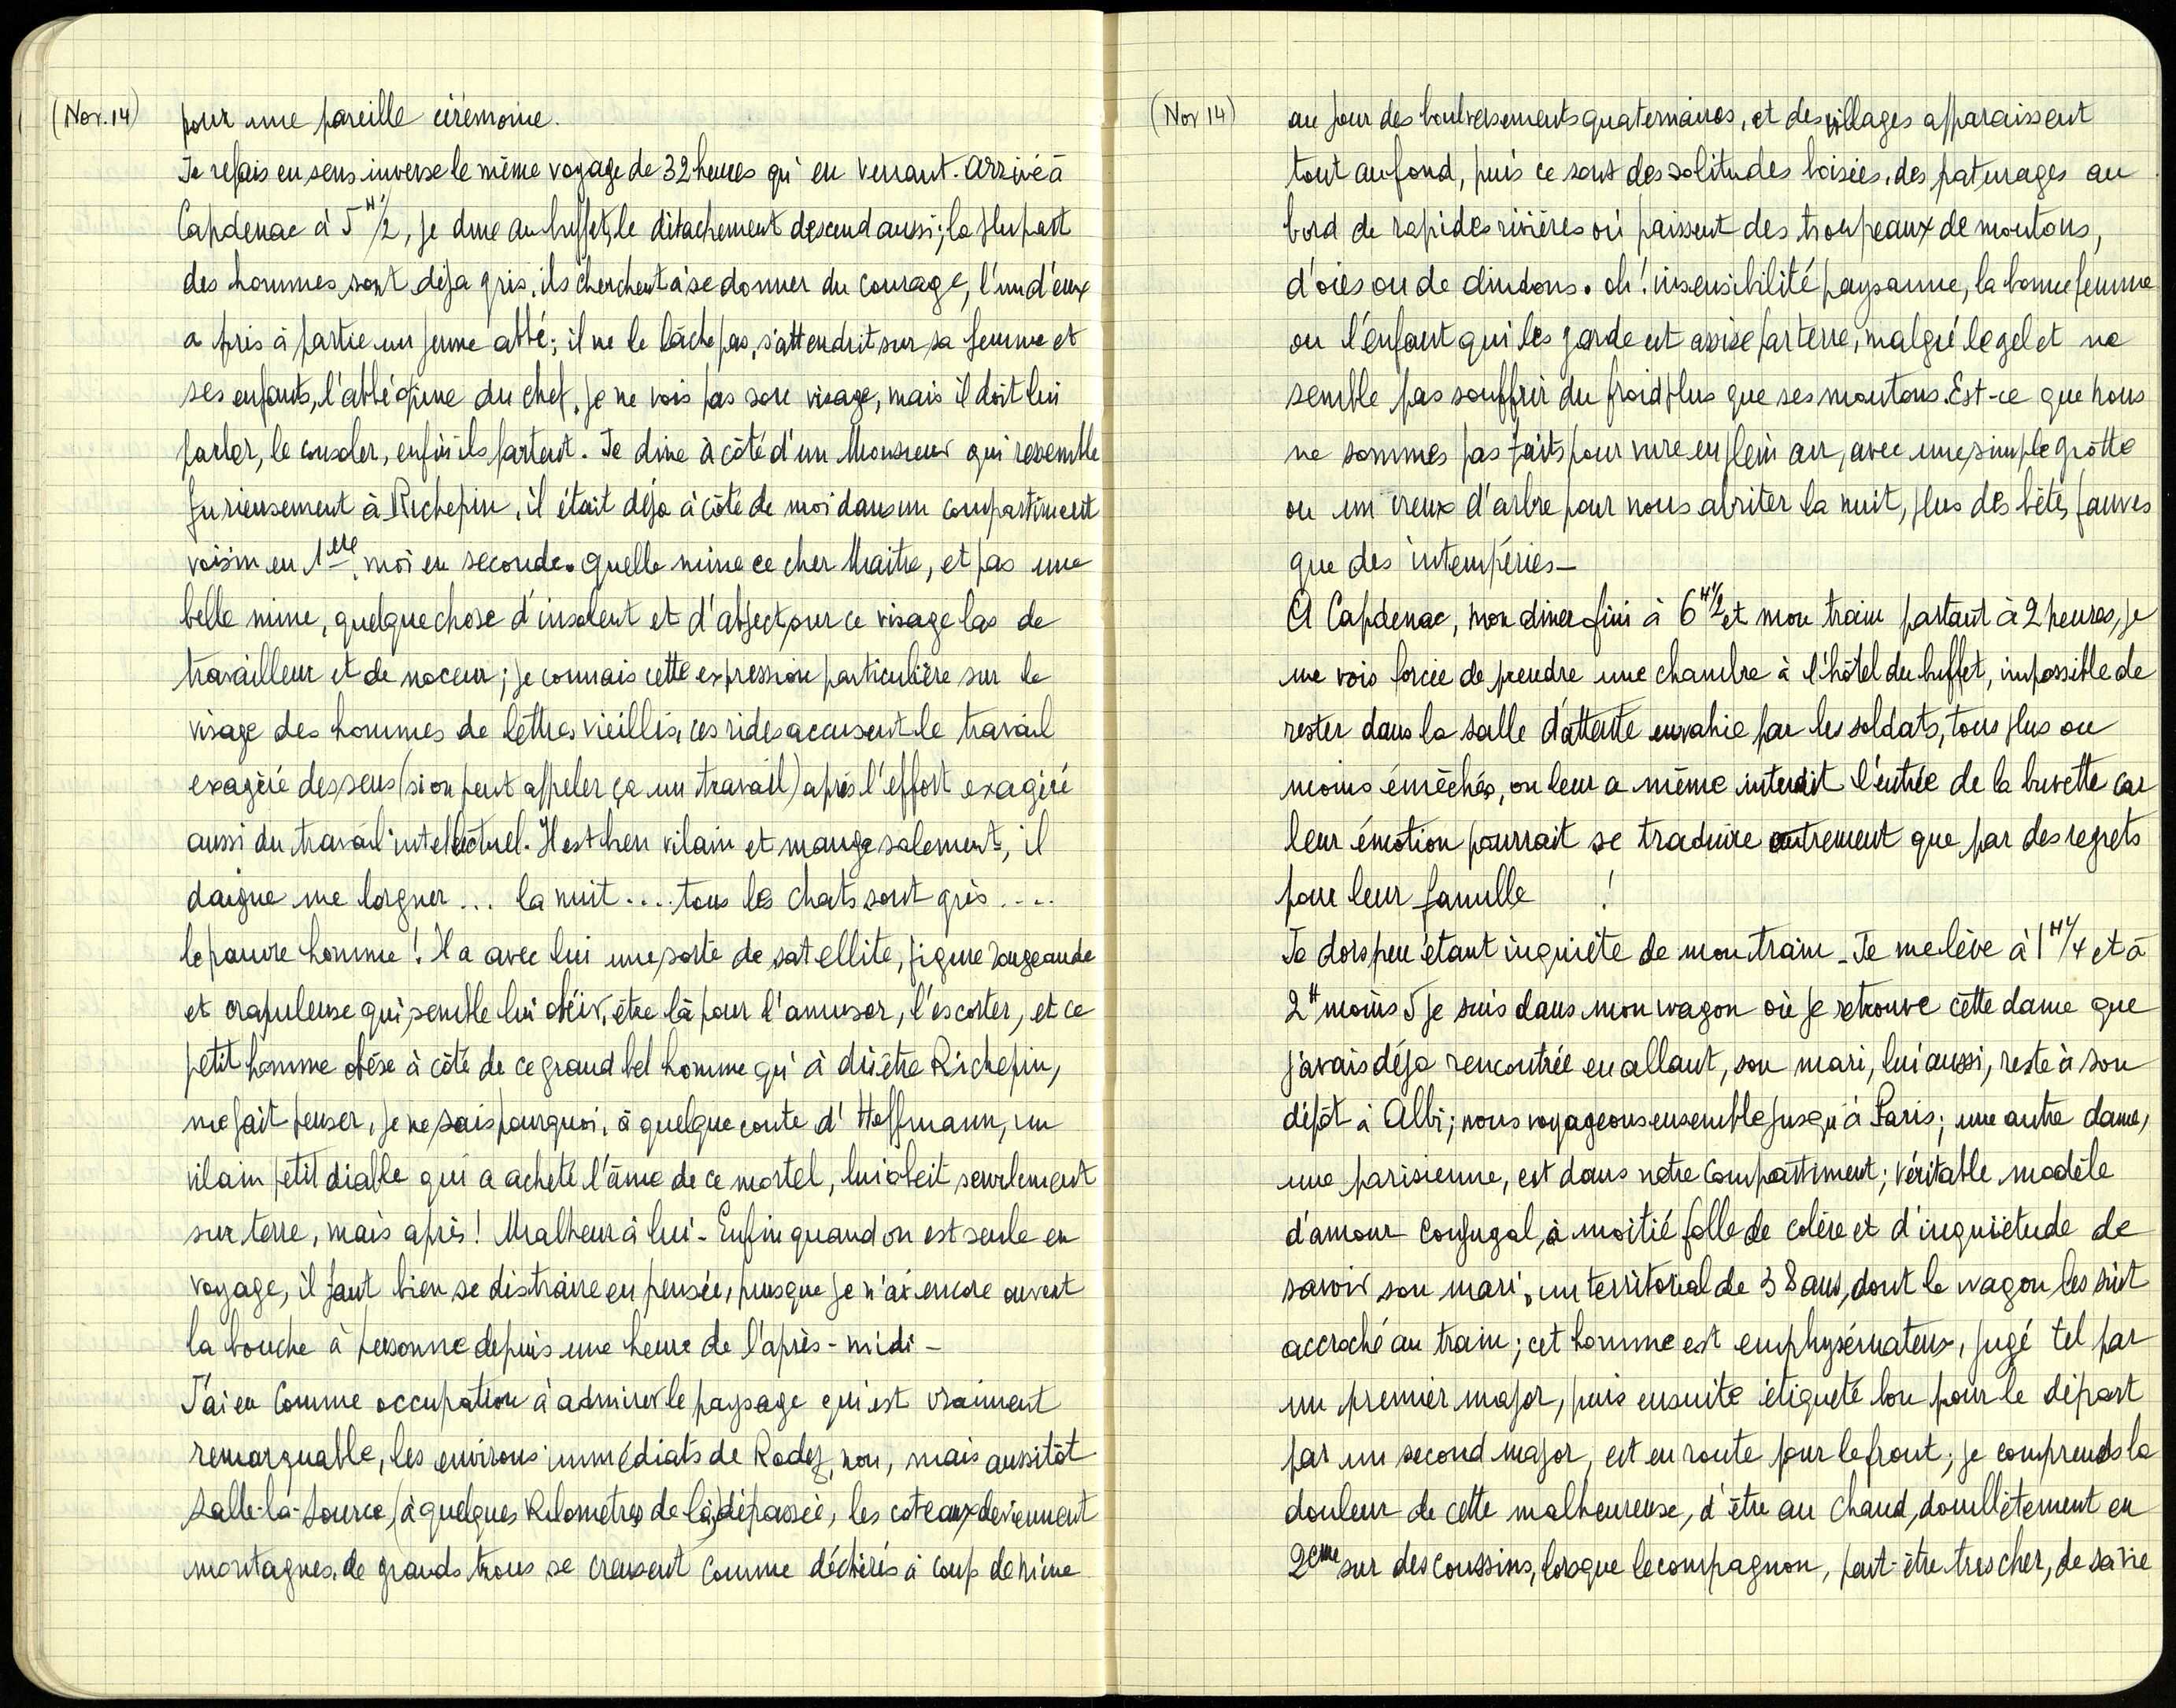 (Nov. 14)
pour une pareille cérémonie.
Je refais en sens inverse le même voyage de 32 heures qu' en venant. Arrivée à
Capdenac à 5 H 1/2, je dine au buffet, le détachement descend aussi; la plupart
des hommes sont déja gris, ils cherchent à se donner du courage, l'un d'eux
a pris à partie un jeune abbé; il ne le lâche pas, s'attendrit sur sa femme et
ses enfants, l'abbé opine du chef, je ne vois pas son visage, mais il doit lui
parler, le consoler, enfin ils partent. Je dine à côté d'un Monsieur qui ressemble
furieusement à Richepin, il était déja à côté de moi dans un compartiment
voisin en 1ère, moi en seconde. Quelle mine ce cher Maitre, et pas une
belle mine, quelque chose d'insolent et d'abject sur ce visage las de
travailleur et de noceur; je connais cette expression particulière sur le
visage des hommes de lettres vieillis, ces rides accusent le travail
exagéré des sens (si on peut appeler ça un travail) après l'effort exagéré
aussi du travail intellectuel. Il est bien vilain et mange salement, il
daigne me lorgner ... la nuit .... tous les chats sont gris ....
le pauvre homme ! Il a avec lui une sorte de satellite, figure rougeaude
et crapuleuse qui semble lui obéir, être là pour l'amuser, l'escorter, et ce
petit homme obèse à côté de ce grand bel homme qu' à dû être Richepin,
me fait penser, je ne sais pourquoi, à quelque conte d' Hoffmann, un
vilain petit diable qui a acheté l'âme de ce mortel, lui obeit servilement
sur terre, mais après ! Malheur à lui - Enfin quand on est seule en
voyage, il faut bien se distraire en pensée, puisque je n'ai encore ouvert
la bouche à personne depuis une heure de l'après-midi -
J'ai eu comme occupation à admirer le paysage qui est vraiment
remarquable, les environs immédiats de Rodez, non, mais aussitôt
Salle-la-Source, (à quelques kilomètres de là) dépassée, les coteaux deviennent
montagnes, de grands trous se creusent comme déchirés à coup de mine
(Nov 14)
au jour des boulversements quaternaires, et des villages apparaissent
tout au fond, puis ce sont des solitudes boisées, des paturages au
bord de rapides rivières où paissent des troupeaux de moutons,
d'oies ou de dindons. oh ! insensibilité paysanne, la bonne femme
ou l'enfant qui les garde est assise par terre, malgré le gel et ne
semble pas souffrir du froid plus que ses moutons. Est-ce que nous
ne sommes pas faits pour vivre en plein air, avec une simple grotte
ou un creux d'arbre pour nous abriter la nuit, plus des bêtes fauves
que des intempéries -
A Capdenac, mon diner fini à 6 H 1/2 et mon train partant à 2 heures, je
me vois forcée de prendre une chambre à l'hôtel du buffet, impossible de
rester dans la salle d'attente envahie par les soldats, tous plus ou
moins éméchés, on leur a même interdit l'entrée de la buvette car
leur émotion pourrait se traduire autrement que par des regrets
pour leur famille !
Je dors peu étant inquiète de mon train - Je me lève à 1 H 1/4 et à
2 H moins 5 je suis dans mon wagon où je retrouve cette dame que
j'avais déja rencontrée en allant, son mari, lui aussi, reste à son
dépôt à Albi; nous voyageons ensemble jusqu'à Paris; une autre dame,
une parisienne, est dans notre compartiment; véritable modèle
d'amour conjugal, à moitié folle de colère et d'inquiétude de
savoir son mari, un territorial de 38 ans, dont le wagon les suit
accroché au train; cet homme est emphysémateux, jugé tel par
un premier major, puis ensuite étiqueté bon pour le départ
par un second major, est en route pour le front; je comprends la
douleur de cette malheureuse, d'être au chaud, douillètement en
2ème sur des coussins, lorsque le compagnon, peut-être tres cher, de sa vie